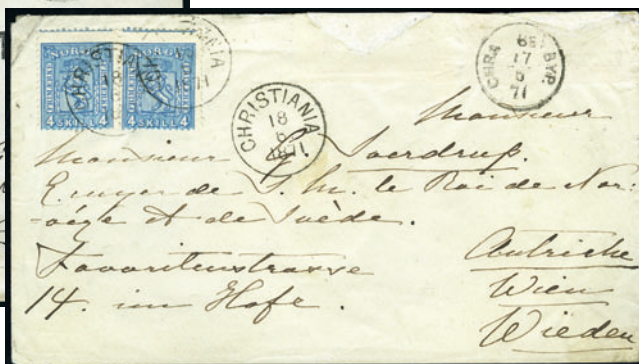 NORGE NORGE
4 SKILL 4 4 SKILL 4
CHRISTIANIA
18
1871
CHRISTIANIA
18
6
1871
CHRA BYP.
17
6
71
Monsieur
Monsieur Sverdrup.
de S. M. le Roi de Nor-
-vége et de Suède.
Favoritenstrasse
14. im Hofe.
Autriche
Wien
Wieden